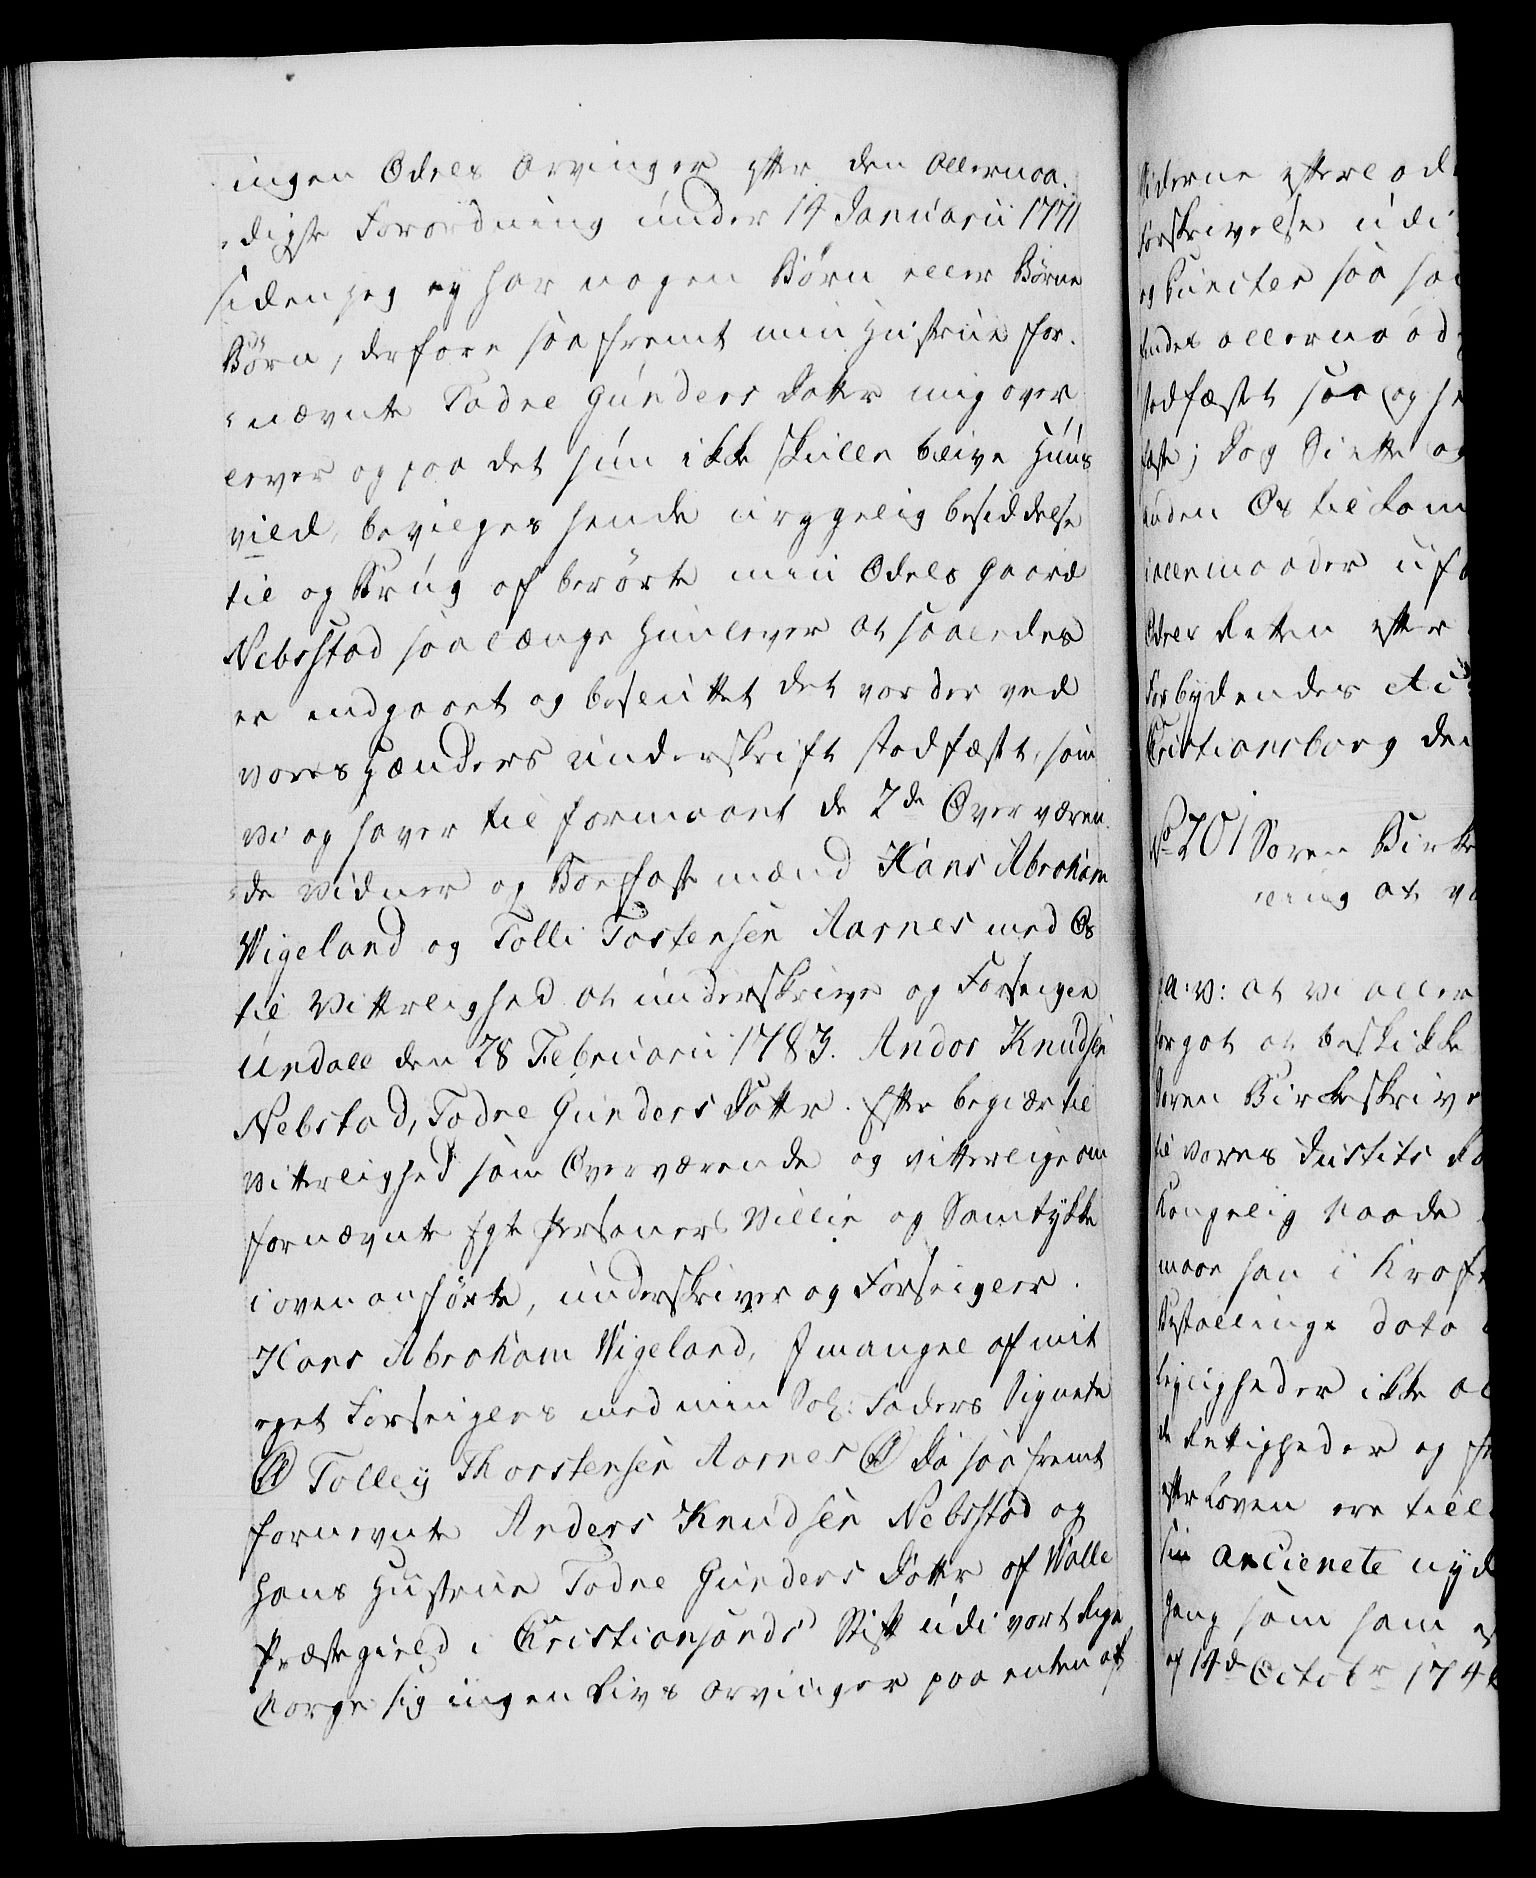 ingen Odels Arvinger efter den Allernaa-
-digste Forordning under 14 Januarii 1771
siden jeg ey har nogen Børn eller Børne
Børn, derfore saafremt min Hustrue for-
-nævnte Todne Gunders Datter mig over
lever og paa det hun ikke skulle blive Huus
vild, bevilges hende uryggelig besiddelse
til og Brug af berørte min Odels Gaard
Nebsstad saalænge hun lever at saaledes
er indgaaet og besluttet det vorder ved
vores Hænders underskrift stadfæstet, som
vi og haver til formaaet de 2de Overværen-
-de Vidner og Boefaste mænd Hans Abraham
Wigeland og Tolli Tostensen Aarnes med Os
til Vitterlighed at underskrive og Forseigle
Undall den 28 Februarii 1783. Andor Knudsen
Nebstad, Todne Gunders Datter. Efter begiær til
Vitterlighed som Overværende og vitterlige om
fornævnte Egte Personers Villie og Samtykke
i ovenanførte, underskriver og Forseigler.
Hans Abraham Wigeland, I mangel af mit
eget Forseigles med min Sal: Faders Signete
Tolley Thorstensen Aarnes Da saafremt
fornevnte Anders Knudsen Nebsstad og
hans Hustrue Todne Gunders Datter af Walle
Præstegield i Christiansands Stift udi vort Rige
Norge sig ingen Livs Arvinger paa enten af
Siderne efterlad
forskrivelse udi
og Puncter saa
findes allernaad
stadfæstet saa og
faste; Dog Siette og
uden Os tilkom
i alle maader
Odels Retten efter
Forbydendes
Cristiansborg den
No 201 Søren Birke
-ning at
G: A: V: at Vi aller
forgot at beskikke
Søren Birckeskriver
til Vores Justits
Kongelig Naade
maae han i Kraft
Bestallings dato
Leyligheder ikke
de Rettigheder og
efter Loven ere till
sin Ancienete nyde
Gang som ham
af 14de Octobr 174